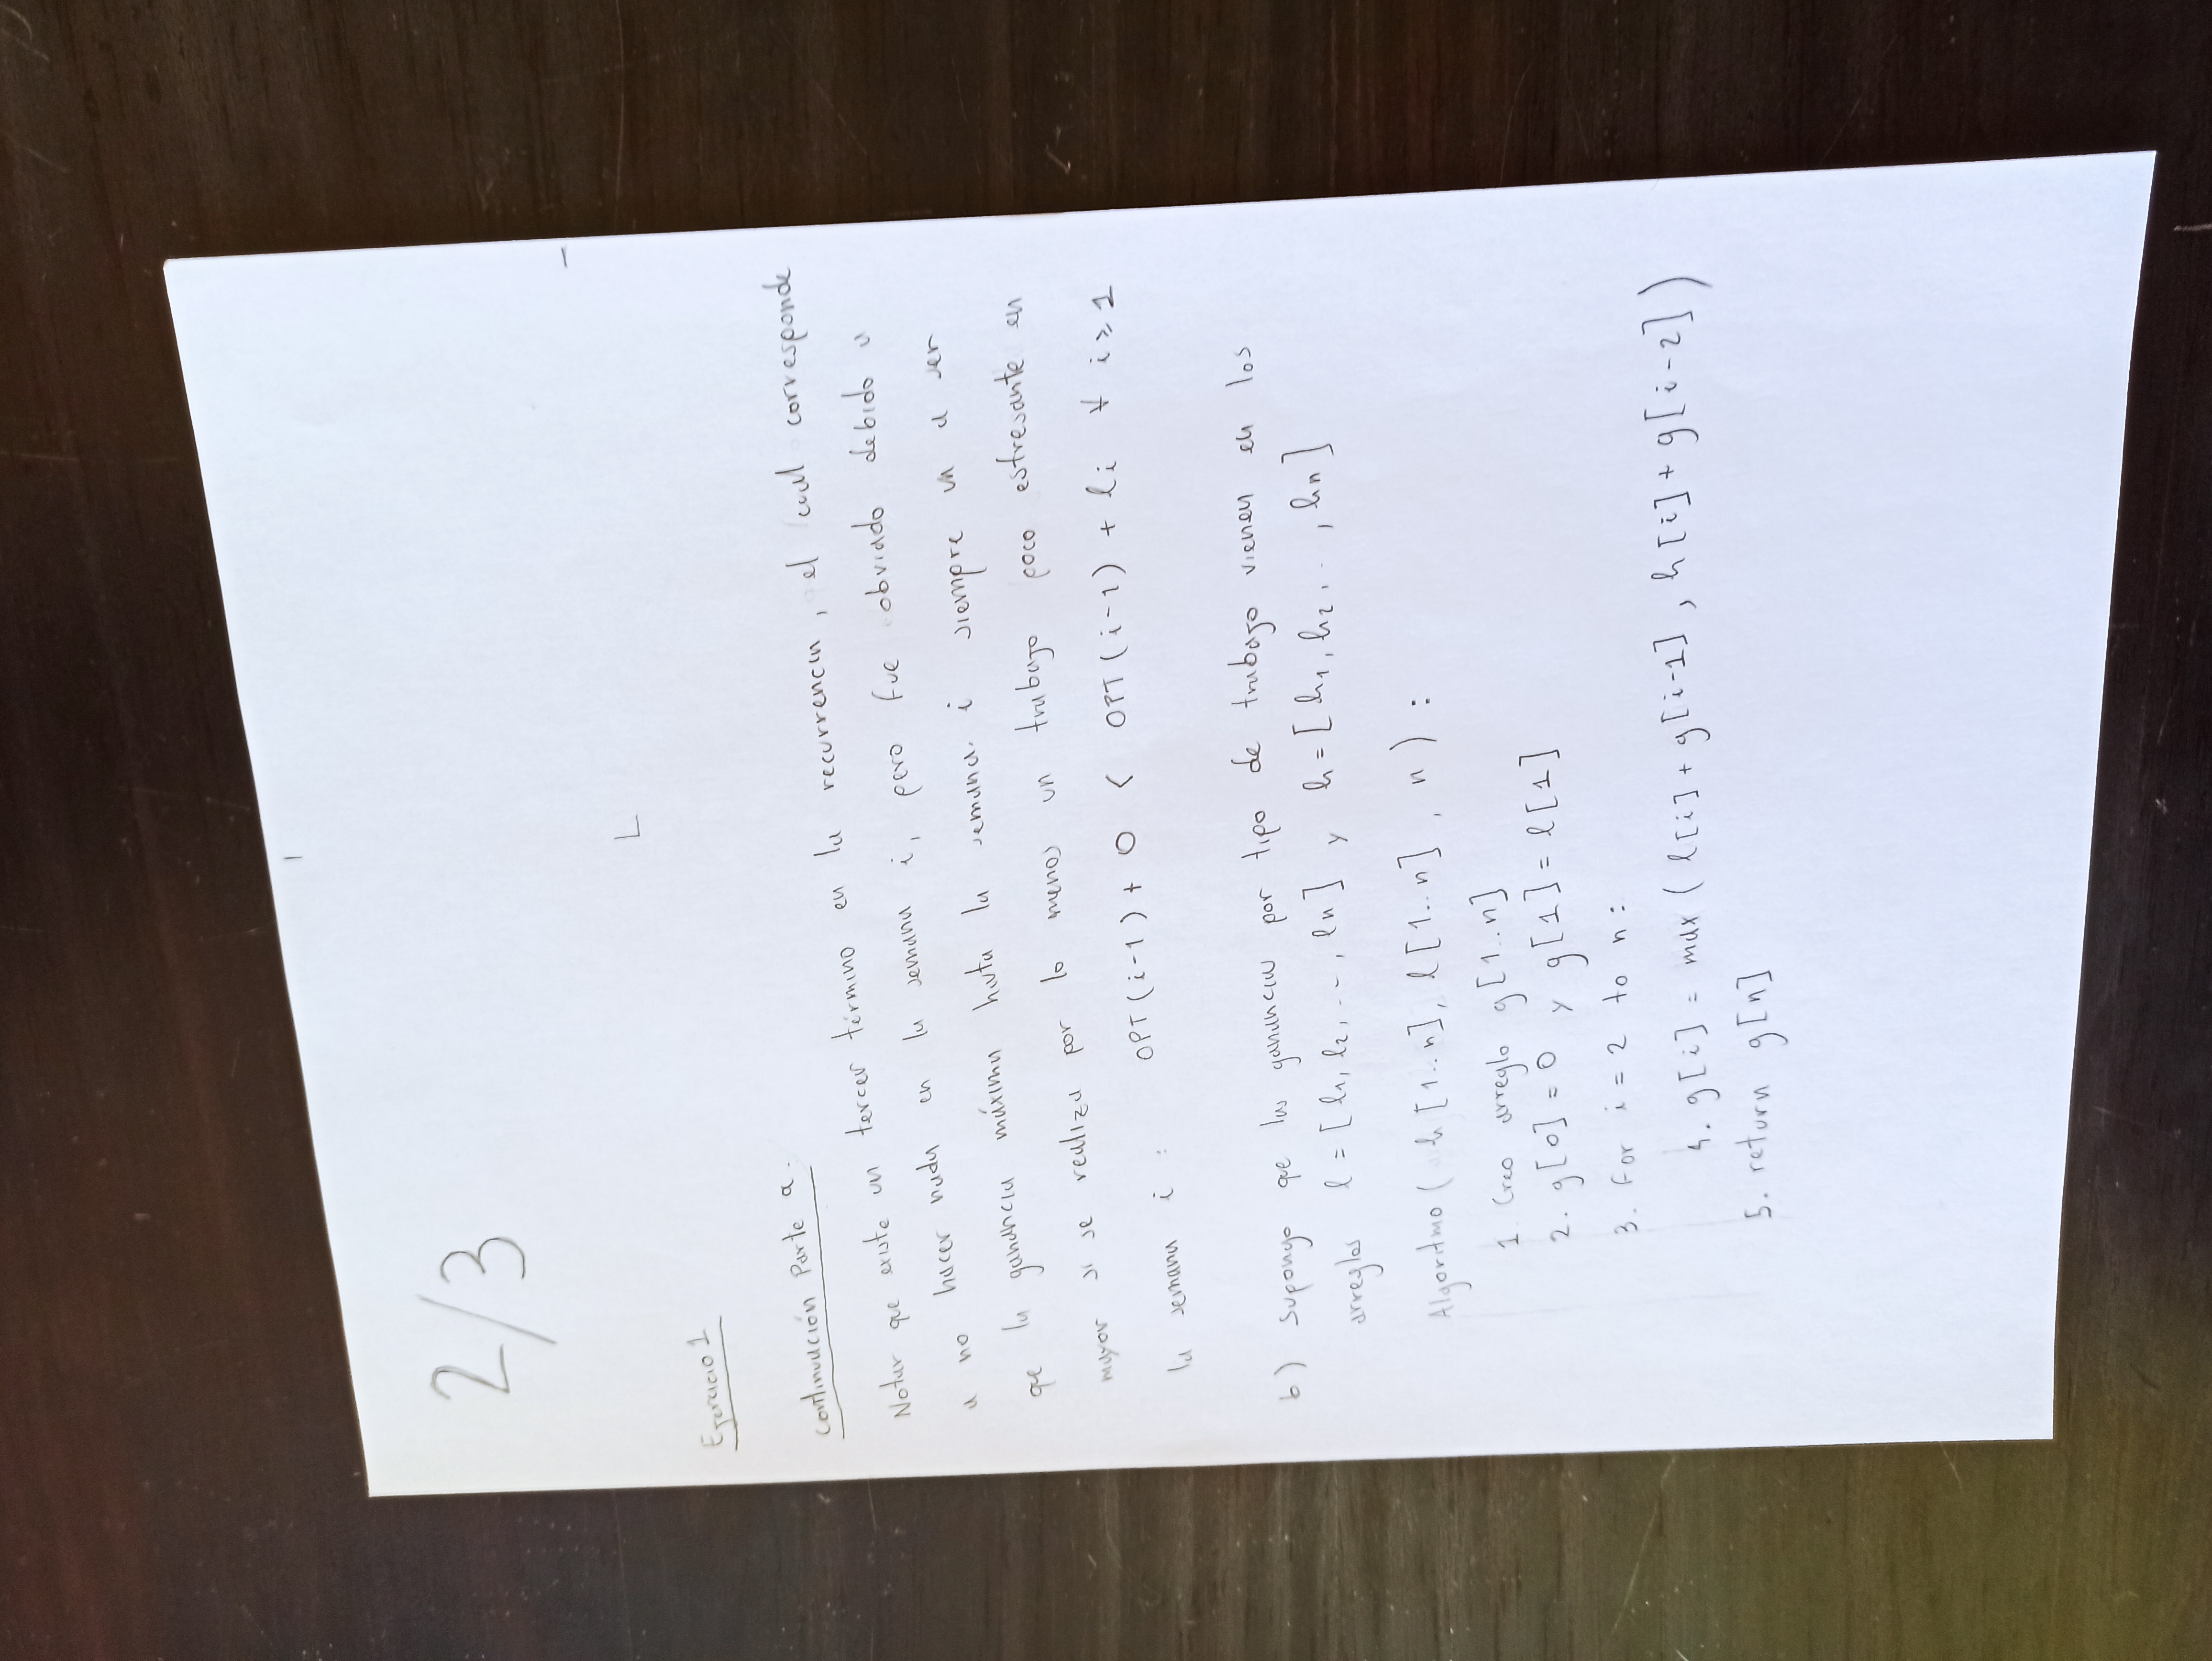 2/3
Ejercicio 1
Continuación Parte a.
Notar que existe un tercer término en la recurrencia, el cual corresponde
a no hacer nada en la semana i, pero fue obviado debido a
que la ganancia máxima hasta la semana i siempre va a ser
mayor si se realiza por lo menos un trabajo poco estresante en
la semana i : OPT(i-1) + 0 < OPT(i-1) + li ∀ i ≥ 1
b) Supongo que las ganancias por tipo de trabajo vienen en los
arreglos l = [l1, l2, .., ln] y h = [h1, h2, .., hn]
Algoritmo ( h[1..n], l[1..n], n ) :
1. Creo arreglo g[1..n]
2. g[0] = 0 y g[1] = l[1]
3. for i = 2 to n:
4. g[i] = max ( l[i] + g[i-1], h[i] + g[i-2] )
5. return g[n]